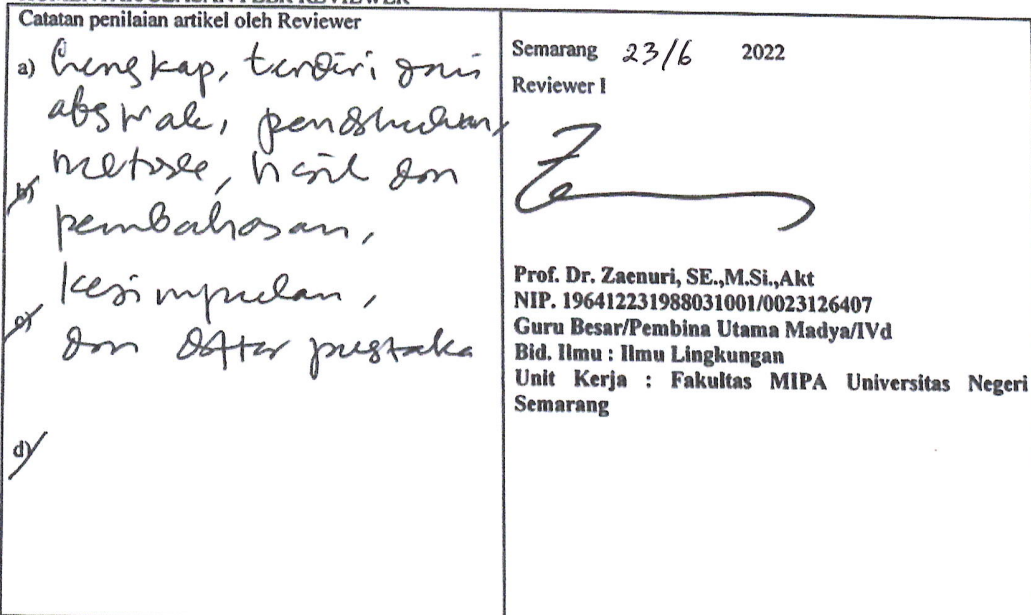 Catatan penilaian artikel oleh Reviewer
a) Lengkap, terdiri dari
abstrak, pendahuluan,
metode, hasil dan
b)
pembahasan,
kesimpulan,
c)
dan daftar pustaka
d)
Semarang 23/6 2022
Reviewer I
Prof. Dr. Zaenuri, SE.,M.Si.,Akt
NIP. 196412231988031001/0023126407
Guru Besar/Pembina Utama Madya/IVd
Bid. Ilmu : Ilmu Lingkungan
Unit Kerja : Fakultas MIPA Universitas Negeri
Semarang